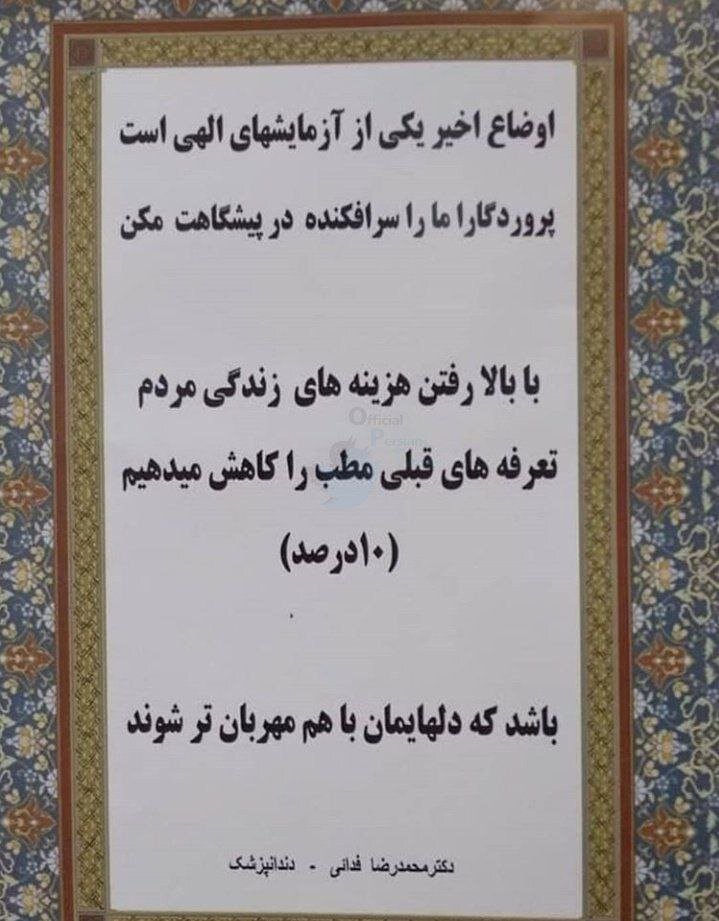 اوضاع اخیر یکی از آزمایشهای الهی است
پروردگارا ما را سرافکنده در پیشگاهت مکن
با بالا رفتن هزینه های زندگی مردم
Official
Persian
تعرفه های قبلی مطب را کاهش میدهیم
(۱۰درصد)
باشد که دلهایمان با هم مهربان تر شوند
دکترمحمدرضا فدائی - دندانپزشک